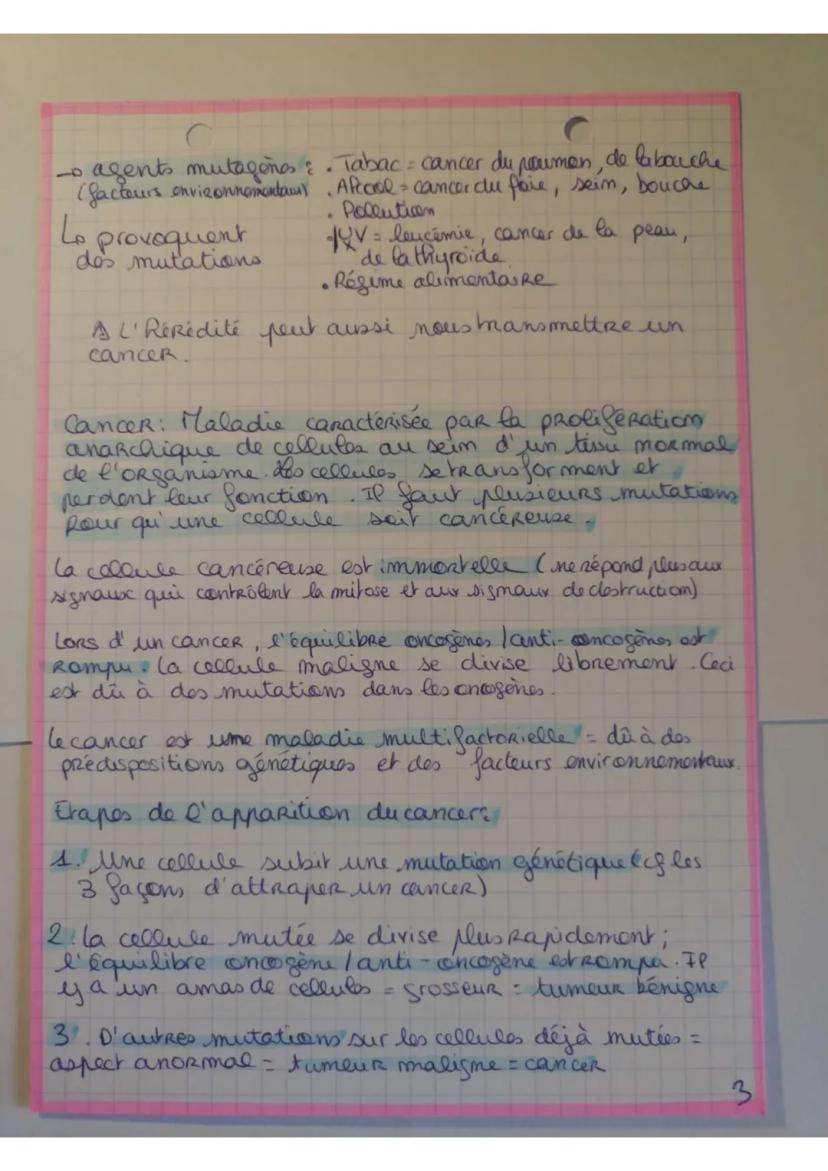 → agents mutagènes : . Tabac = cancer du poumon, de la bouche
(facteurs environnementaux) . Alcool = cancer du foie, sein, bouche
. Pollution
↳ provoquent UV = leucémie, cancer de la peau,
des mutations de la thyroïde
. Régime alimentaire
⚠ L'hérédité peut aussi nous transmettre un
cancer.
Cancer : Maladie caractérisée par la prolifération
anarchique de cellules au sein d'un tissu normal
de l'organisme. Les cellules se transforment et
perdent leur fonction. Il faut plusieurs mutations
pour qu'une cellule soit cancéreuse.
La cellule cancéreuse est immortelle (ne répond plus aux
signaux qui contrôlent la mitose et aux signaux de destruction)
Lors d'un cancer, l'équilibre oncogènes / anti-oncogènes est
rompu. La cellule maligne se divise librement. Ceci
est dû à des mutations dans les oncogènes.
Le cancer est une maladie multifactorielle = dû à des
prédispositions génétiques et des facteurs environnementaux.
Etapes de l'apparition du cancer :
1. Une cellule subit une mutation génétique (cf les
3 façons d'attraper un cancer)
2. La cellule mutée se divise plus rapidement ;
l'équilibre oncogène / anti-oncogène est rompu. Il
y a un amas de cellules = grosseur = tumeur bénigne
3. D'autres mutations sur les cellules déjà mutées =
aspect anormal = tumeur maligne = cancer
3